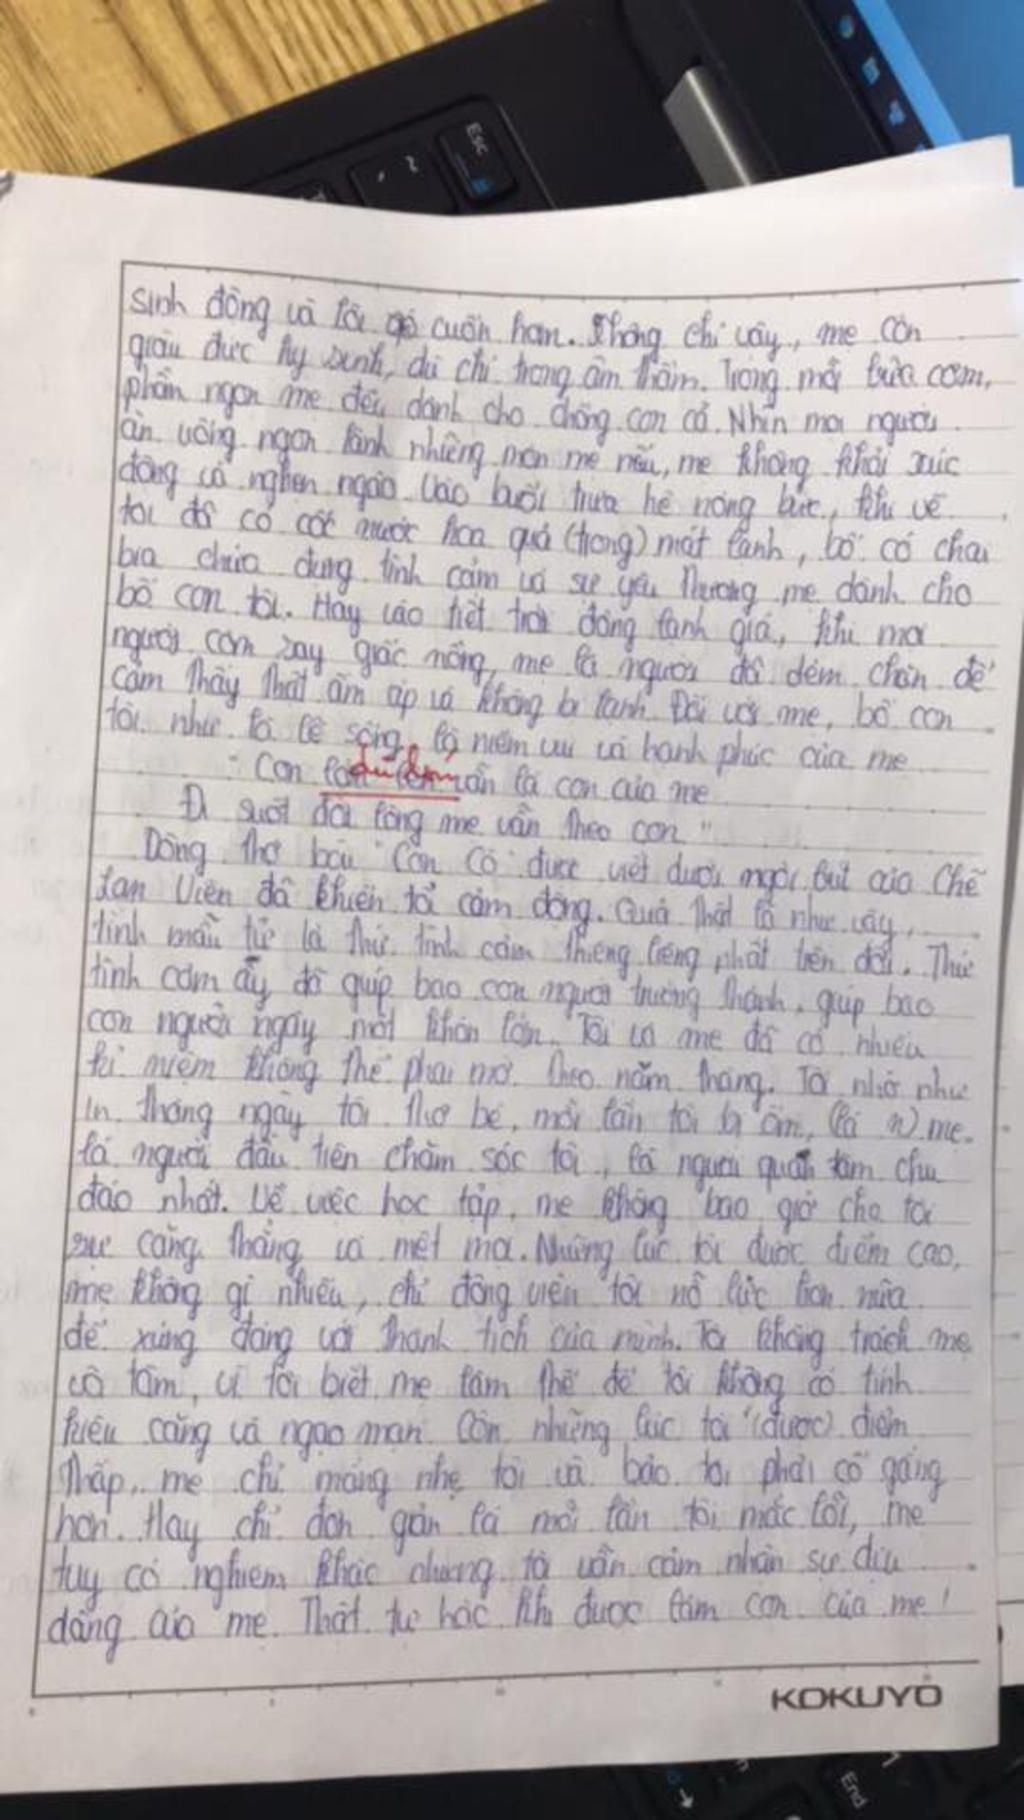 Esc
sinh động và lôi cuốn hơn. Không chỉ vậy, mẹ còn
giàu đức hy sinh, dù chỉ trong âm thầm. Trong mỗi bữa cơm,
phần ngon mẹ đều dành cho chồng con cả. Nhìn mọi người
ăn uống ngon lành nhiêng món mẹ nấu, mẹ không khỏi xúc
động và nghẹn ngào. Vào buổi trưa hè nóng bức, khi về
tôi đã có cốc nước hoa quả (trong) mát lạnh, bố có chai
bia chứa đựng tình cảm và sự yêu thương mẹ dành cho
bố con tôi. Hay vào tiết trời đông lạnh giá, khi mọi
người còn say giấc nồng, mẹ là người đã đem chăn để
cảm thấy thật ấm áp và không bị lạnh. Đối với mẹ, bố con
tôi như là lẽ sống, là niềm vui và hạnh phúc của mẹ
"Con dù lớn vẫn là con của mẹ
Đi suốt đời lòng mẹ vẫn theo con"
Dòng thơ bài "Con Cò" được viết dưới ngòi bút của Chế
Lan Viên đã khiến tôi cảm động. Quả thật là như vậy,
tình mẫu tử là thứ tình cảm thiêng liêng nhất trên đời. Thứ
tình cảm ấy đã giúp bao con người trưởng thành, giúp bao
con người ngày một khôn lớn. Tôi và mẹ đã có nhiều
kỉ niệm không thể phai mờ theo năm tháng. Tôi nhớ như
in tháng ngày tôi thơ bé, mỗi lần tôi bị ốm, mẹ
là người đầu tiên chăm sóc tôi, là người quan tâm chu
đáo nhất. Về việc học tập, mẹ không bao giờ cho tôi
sự căng thẳng và mệt mỏi. Những lúc tôi được điểm cao,
mẹ không gì nhiều, chỉ động viên tôi nỗ lực hơn nữa
để xứng đáng với thành tích của mình. Tôi không trách mẹ
vô tâm, vì tôi biết mẹ làm thế để tôi không có tính
kiêu căng và ngạo mạn. Còn những lúc tôi (được) điểm
thấp, mẹ chỉ mắng nhẹ tôi và bảo tôi phải cố gắng
hơn. Hay chỉ đơn giản là mỗi lần tôi mắc lỗi, mẹ
tuy có nghiêm khắc nhưng tôi vẫn cảm nhận sự dịu
dàng của mẹ. Thật tự hào khi được làm con của mẹ!
KOKUYO
End